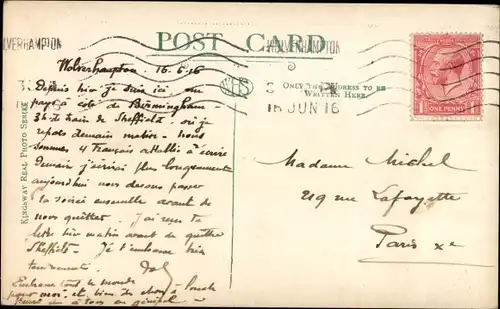 POST CARD
WOLVERHAMPTON
WOLVERHAMPTON
WHS
ONLY THE ADDRESS TO BE
WRITTEN HERE.
16 JUN 16
ONE PENNY
KINGSWAY REAL PHOTO SERIES
Wolverhampton, 16.6.16
Depuis hier je suis ici, un
pays à côté de Birmingham -
3h. de train de Sheffield - où je
repars demain matin - nous
sommes 4 Français attablés à écrire
Demain j'écrirai plus longuement
aujourd'hui nous devons passer
la soirée ensemble avant de
nous quitter. J'ai reçu ta
lettre hier matin avant de quitter
Sheffield - Je t'embrasse bien
tendrement
Embrasse tout le monde
pour moi, et bien des choses à
en général
Madame Michel
219 rue Lafayette
Paris Xe